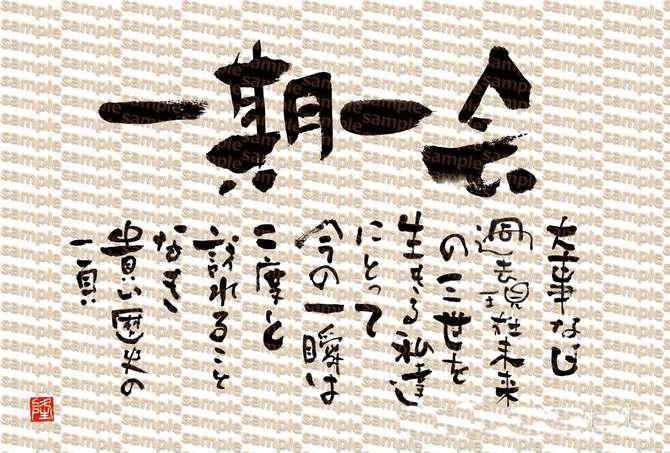 一期一会
大事なじ
過去現在未来
の三世を
生きる私達
にとって
今の一瞬は
二度と
訪れること
なき
貴い歴史の
一頁
隆
sample